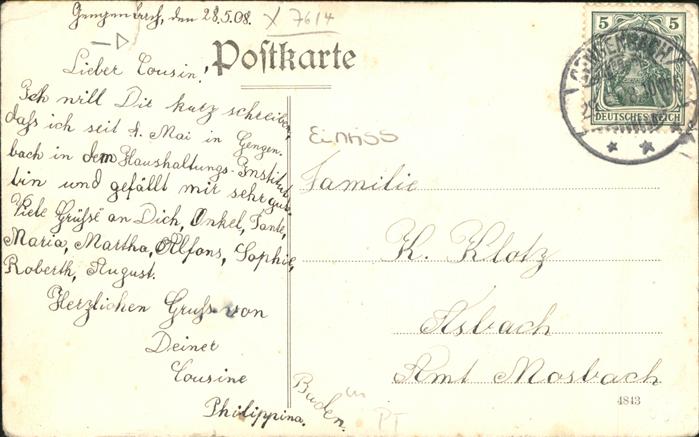 Gengenbach, den 28.5.08.
X 7614
Postkarte
Lieber Cousin!
Ich will Dir kurz schreiben,
daß ich seit 1. Mai in Gengen-
bach in dem Haushaltungs-Institut
bin und gefällt mir sehr gut.
Viele Grüße an Dich, Onkel, Tante,
Maria, Martha, Alfons, Sophie,
Roberth, August.
Herzlichen Gruß von
Deiner
Cousine
Philippina.
5 5
DEUTSCHES REICH
GENGENBACH
Einriss
Familie
K. Klotz
Asbach
Amt Mosbach
Baden.
4843
PT